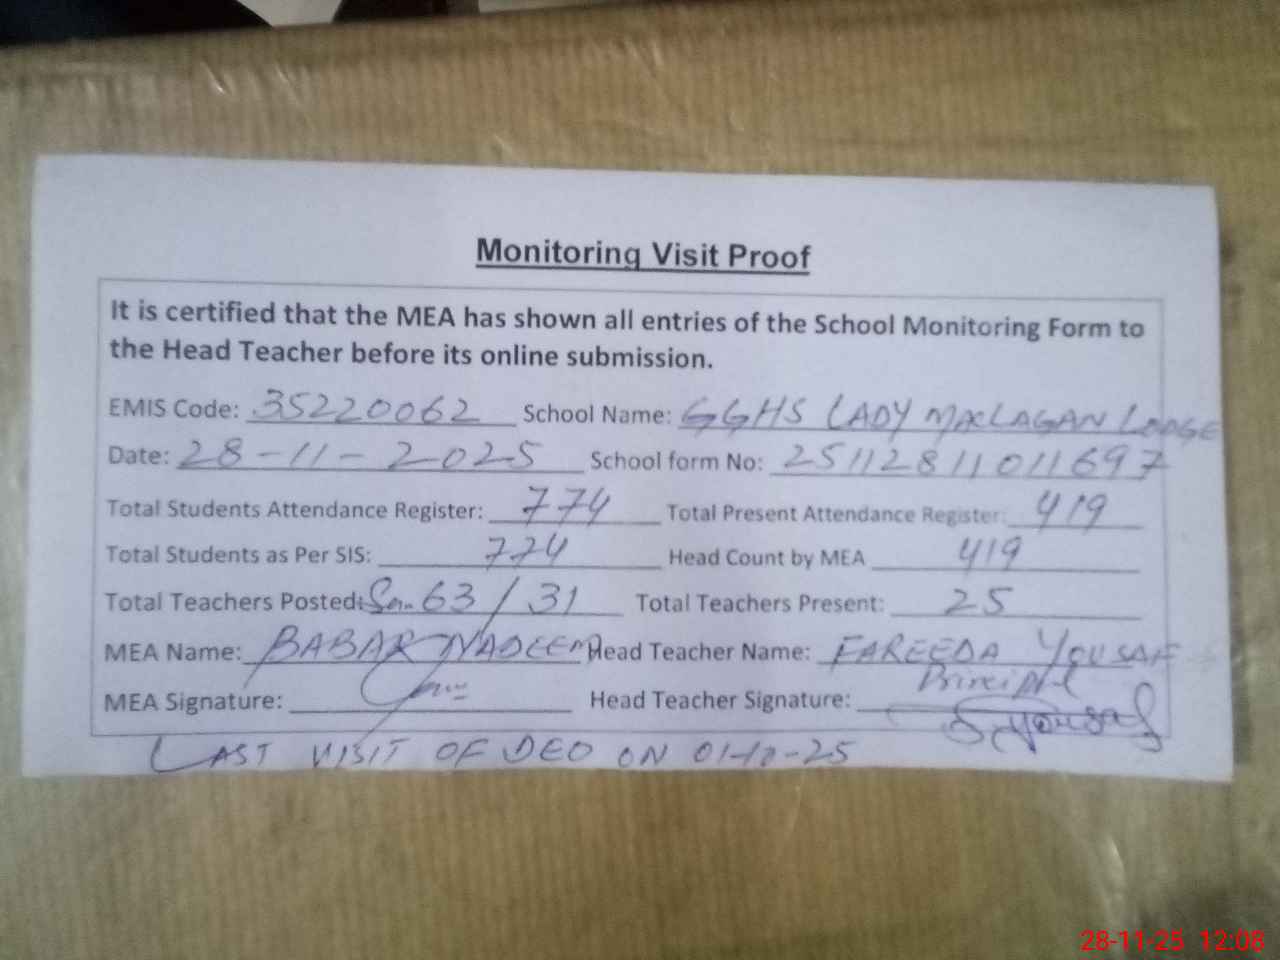 Monitoring Visit Proof
It is certified that the MEA has shown all entries of the School Monitoring Form to
the Head Teacher before its online submission.
EMIS Code: 35220062 School Name: GGHS LADY MACLAGAN LODGE
Date: 28-11-2025 School form No: 25112811011697
Total Students Attendance Register: 774 Total Present Attendance Register: 419
Total Students as Per SIS: 774 Head Count by MEA 419
Total Teachers Posted: San. 63/31 Total Teachers Present: 25
MEA Name: BABAR NADEEM Head Teacher Name: FAREEDA YOUSAF
Principal
MEA Signature: Head Teacher Signature: F. Yousaf
LAST VISIT OF DEO ON 01-10-25
28-11-25 12:08